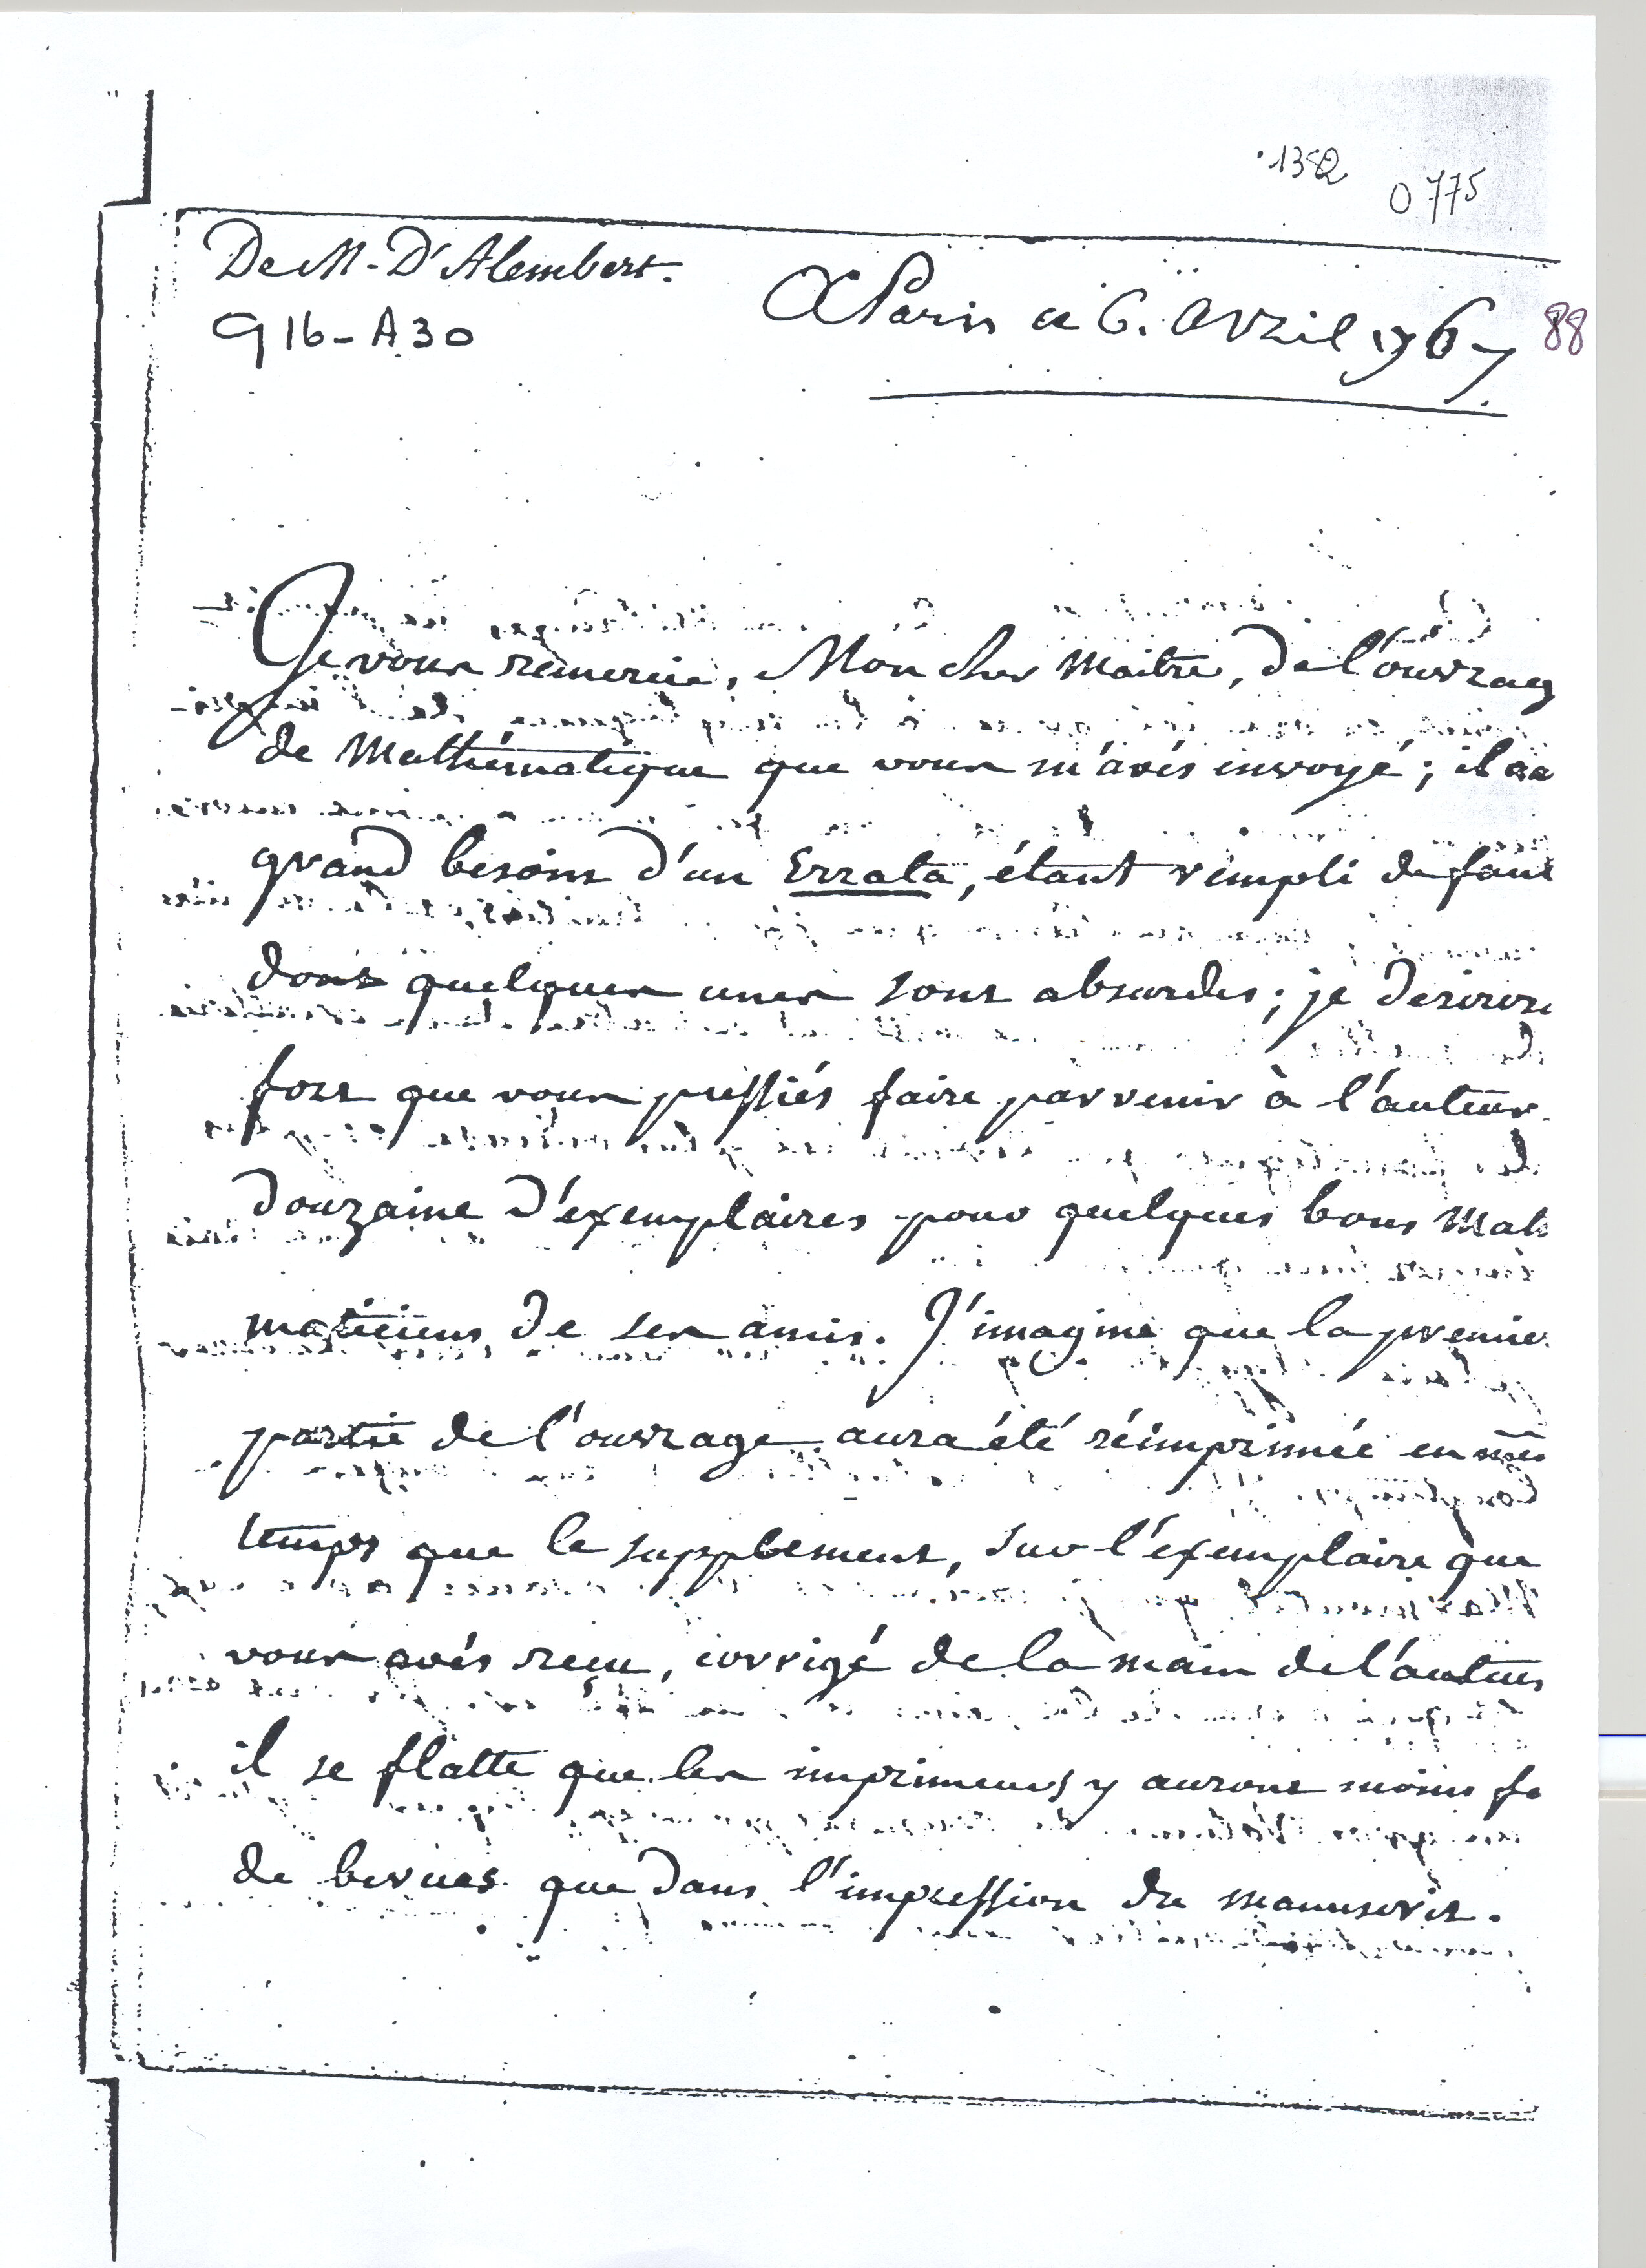 1382
0775
De M. D'Alembert.
A Paris ce 6. Avril 1767
88
G16-A30
Je vous remercie, Mon cher Maitre, de l'ouvrag
de Mathématique que vous m'avés envoyé; il a
grand besoin d'un Errata, étant rempli de faut
dont quelques unes sont absurdes; je desirer
fort que vous pussiés faire parvenir à l'auteur
douzaine d'exemplaires pour quelques bons Math
maticiens de ses amis. J'imagine que la premier
partie de l'ouvrage aura été réimprimée en mê
temps que le supplement, sur l'exemplaire que
vous avés reçu, corrigé de la main de l'auteur
il se flatte que les imprimeurs y auront moins fa
de bevues que dans l'impression du manuscrit.